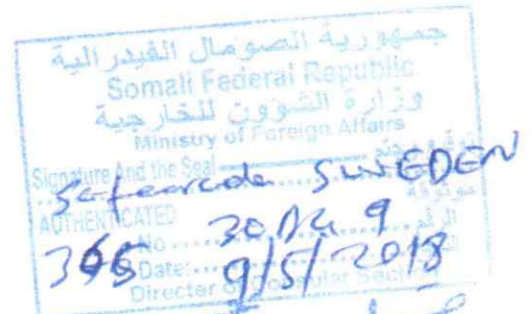 جمهورية الصومال الفيدرالية
Somali Federal Republic
وزارة الشؤون للخارجية
Ministry of Foreign Affairs
Signature And the Seal
Safaarada SWEDEN
AUTHENTICATED
No
الرقم
366
Date: 9/5/2018
Director of Consular Section